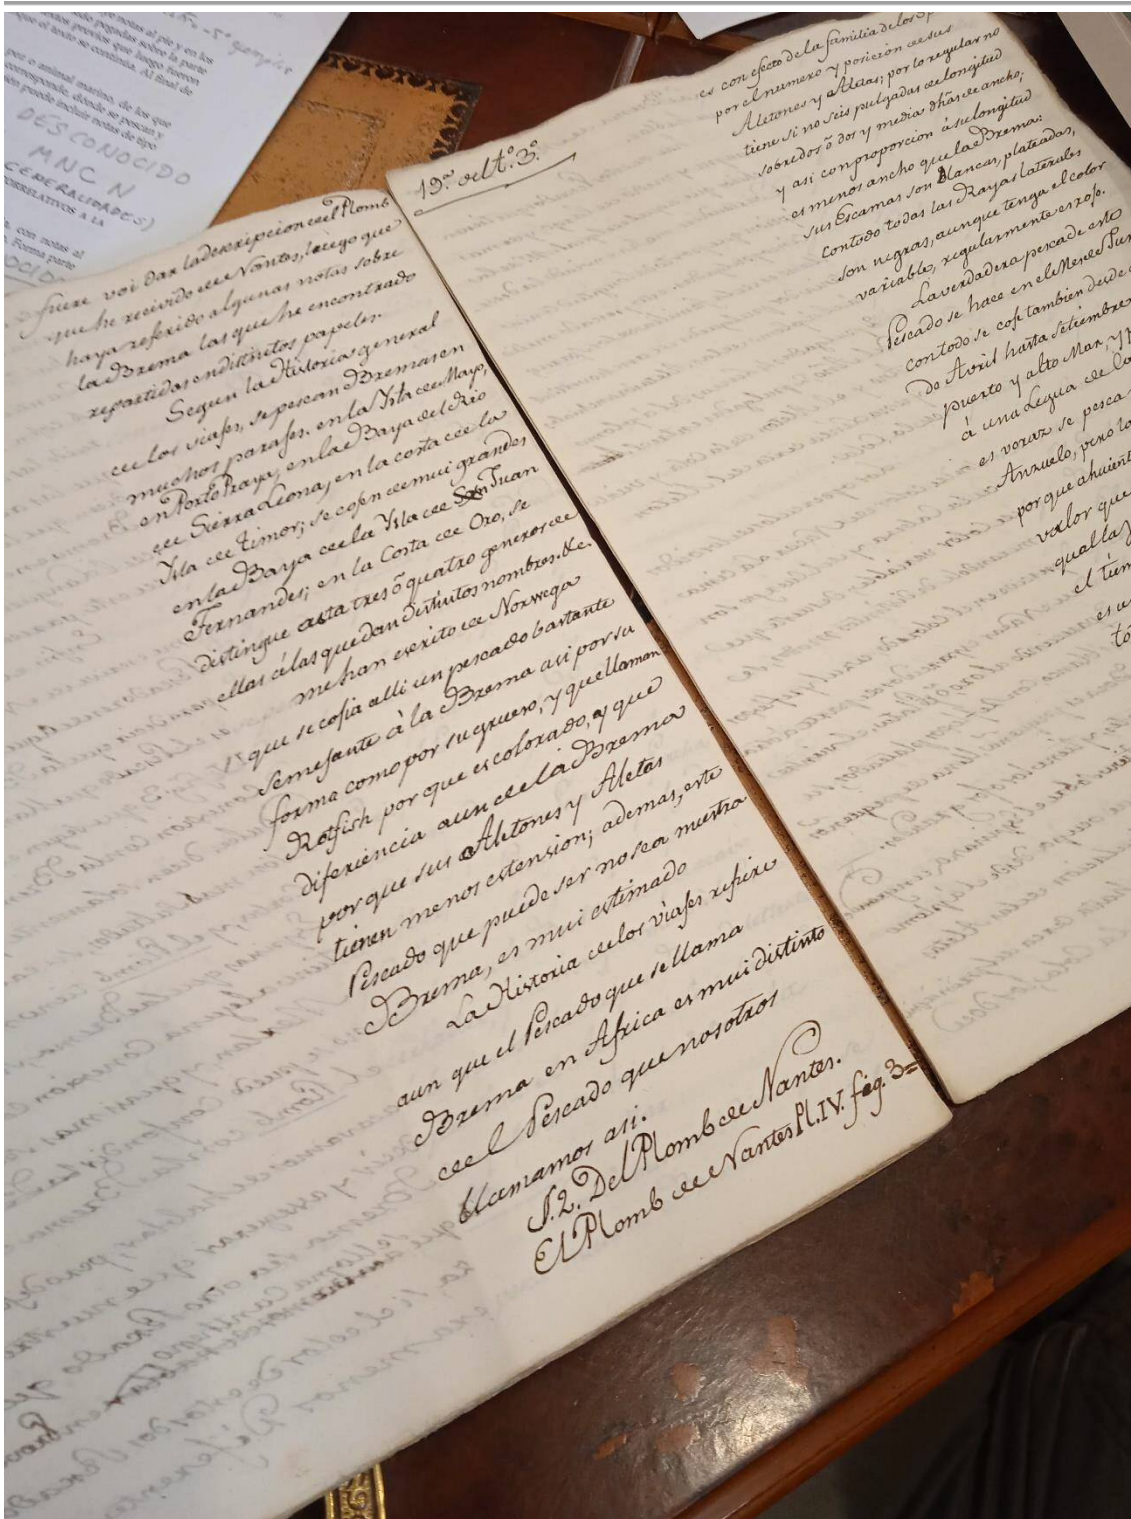 notas al pie y en los
pegadas sobre la parte
textos previos que luego fueron
que el texto se continúa. Al final de
pez o animal marino, de los que
corresponde, dónde se pescan y
puede incluir notas de tipo
DESCONOCIDO
MNCN
GENERALIDADES)
CORRELATIVOS A LA
con notas al
Forma parte
19º. del tº. 3º.
fuere voi dar la descripcion del Plomb
que he recivido de Nantes, luego que
haya referido algunas notas sobre
la Brema las que he encontrado
repartidas en distintos papeles.
Segun la Historia general
de los viajes, se pescan Bremas en
muchos parajes. en la Ysla de Mayo,
en Porto Praya, en la Baya del Rio
de Sierra Leona, en la costa de la
Ysla de Timor; se cojen de mui grandes
en la Baya de la Ysla de San Juan
Fernandes; en la Costa de Oro, se
distingue asta tres ô quatro generos de
ellas â las que dan distintos nombres. &c.
me han escrito de Norwega
que se cojia alli un pescado bastante
semejante â la Brema asi por su
forma como por su grueso, y que llaman
Rotfish por que es colorado, y que
diferiencia aun de la Brema
por que sus Aletones y Aletas
tienen menos estension; ademas, este
Pescado que puede ser no sea nuestra
Brema, es mui estimado
La Historia de los viajes refiere
aun que el Pescado que se llama
Brema en Africa es mui distinto
del Pescado que nosotros
llamamos asi.
§. 2. Del Plomb de Nantes.
El Plomb de Nantes Pl. IV. fig. 3=
es con efecto de la familia de los
por el numero y posicion de sus
Aletones y Aletas; por lo regular no
tiene si no seis pulgadas de longitud
sobre dos ô dos y media dhas de ancho;
y asi con proporcion â su longitud
es menos ancho que la Brema:
sus Escamas son Blancas, plateadas,
con todo todas las Rayas laterales
son negras, aunque tenga el color
variable, regularmente es rojo.
La verdadera pesca de este
Pescado se hace en el Mes de
con todo se coje tambien desde
De Avril hasta Setiembre
puerto y alto Mar, y
â una Legua de la
es voraz se pesca
Anzuelo, pero
por que ahuient
valor que
qual la
el